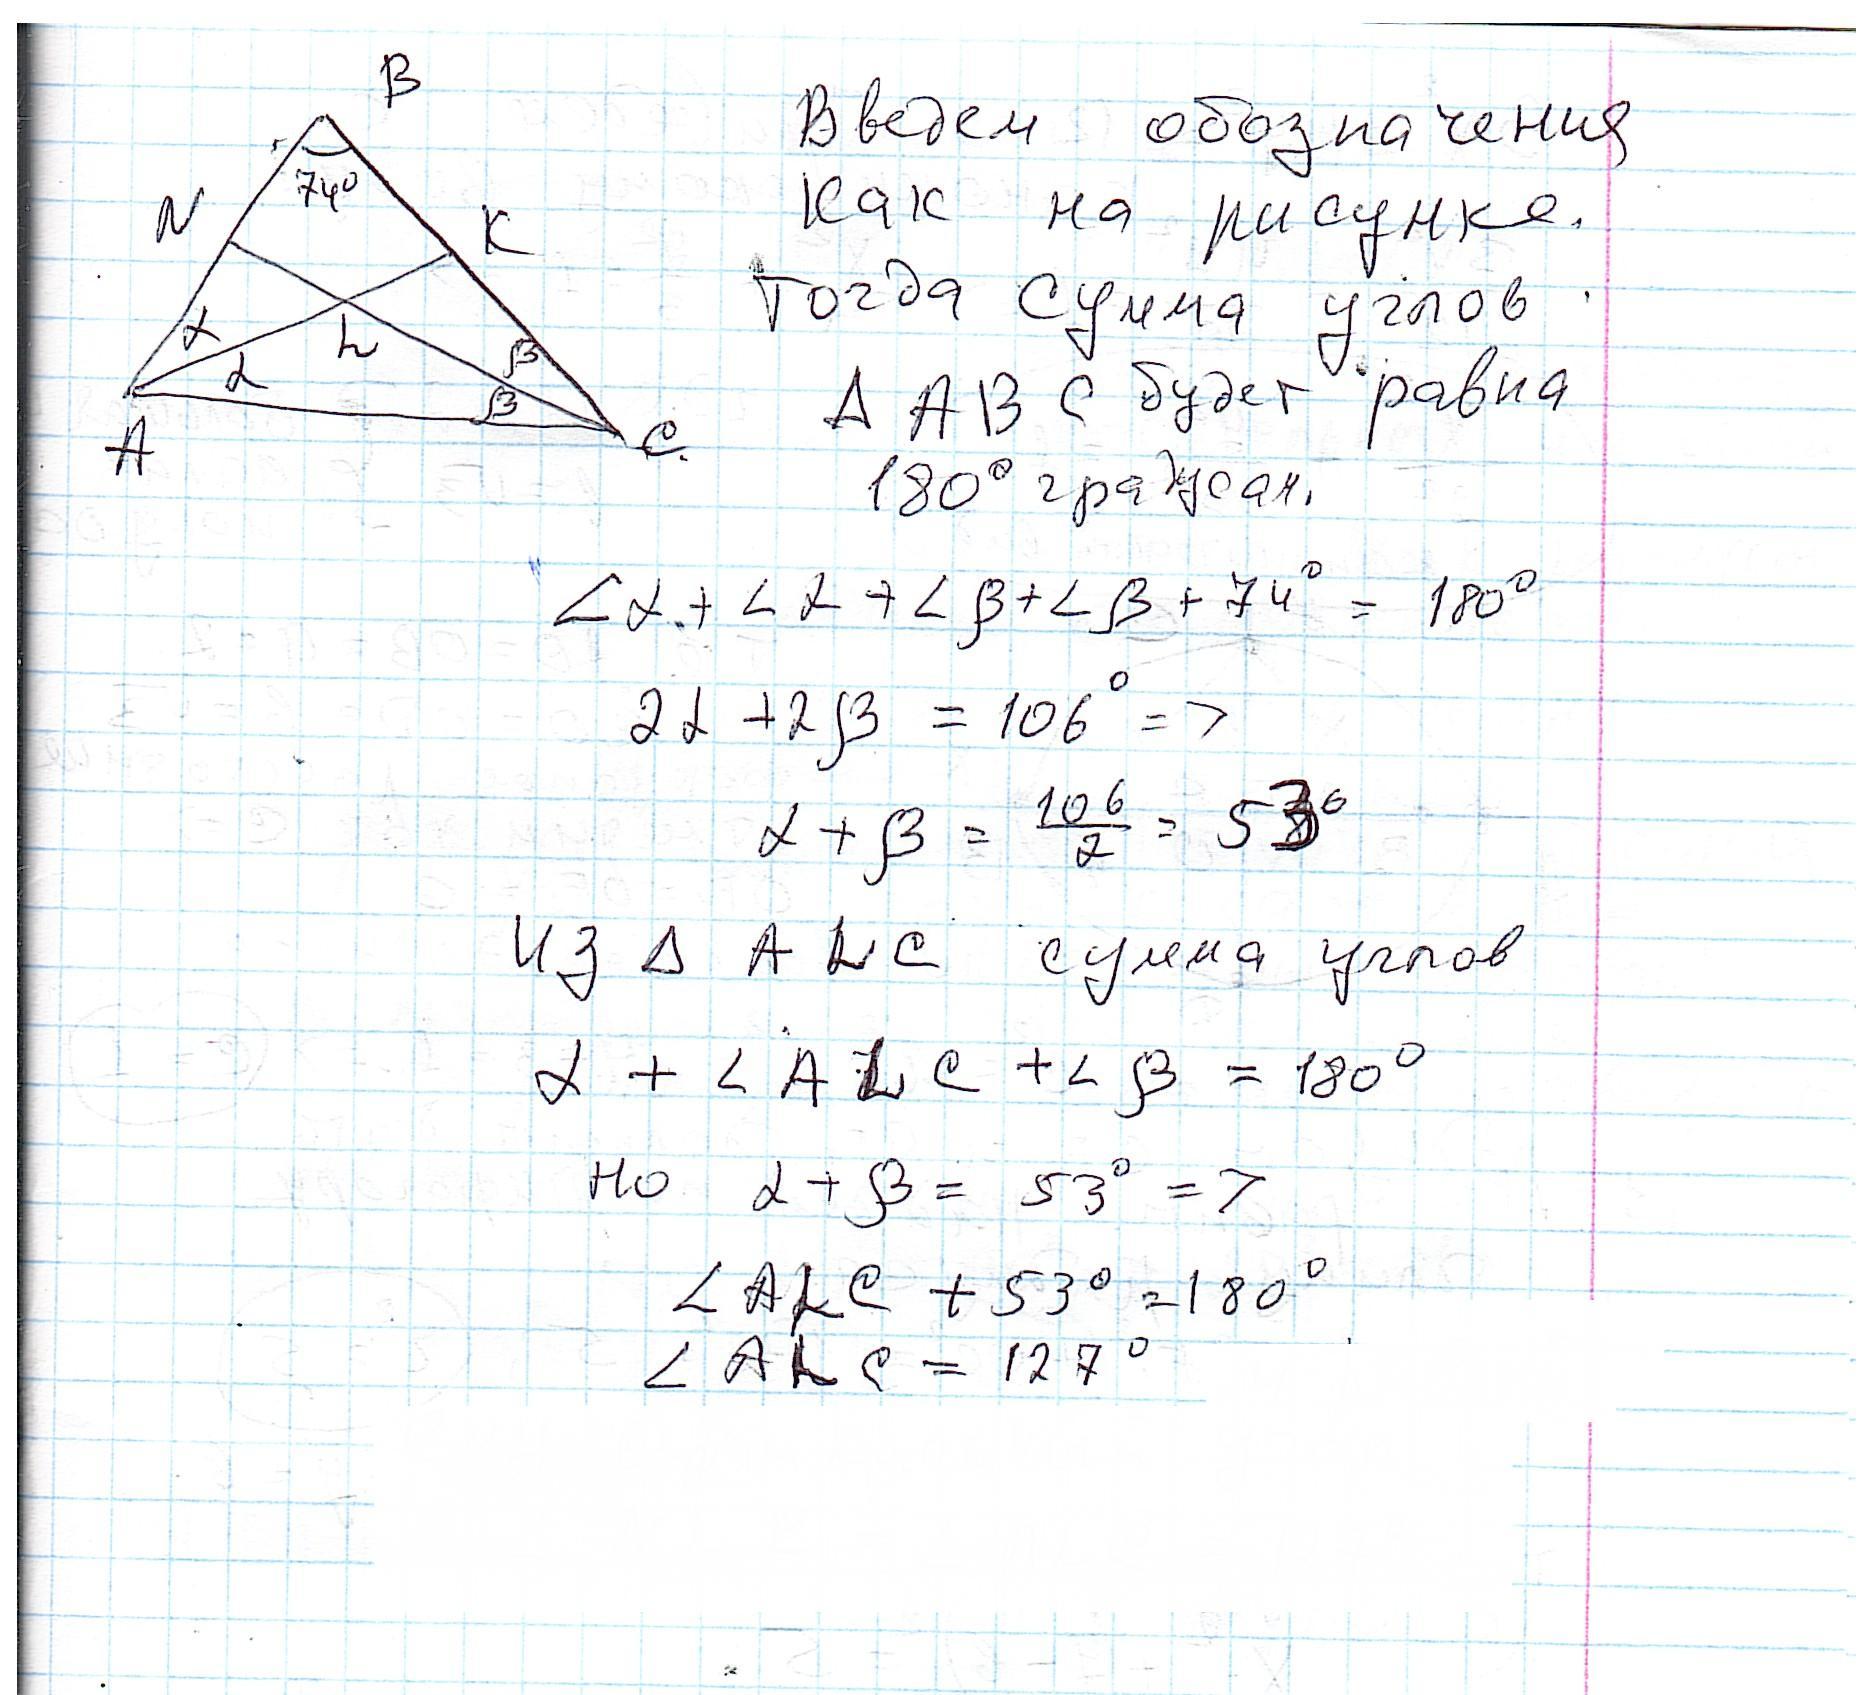 B
74°
N
K
α
L
β
α
β
A
C.
Введем обозначения
как на рисунке.
Тогда сумма углов
Δ ABC будет равна
180°
∠α + ∠α + ∠β + ∠β + 74° = 180°
2α + 2β = 106° =>
α + β = 106/2 = 53°
Из Δ ALC сумма углов
α + ∠ALC + ∠β = 180°
Но α + β = 53° =>
∠ALC + 53° = 180°
∠ALC = 127°